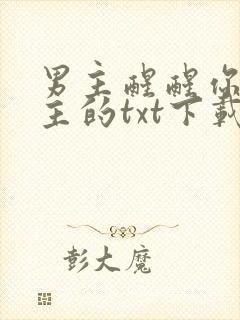 男主醒醒你
主的txt下载
彭大魔